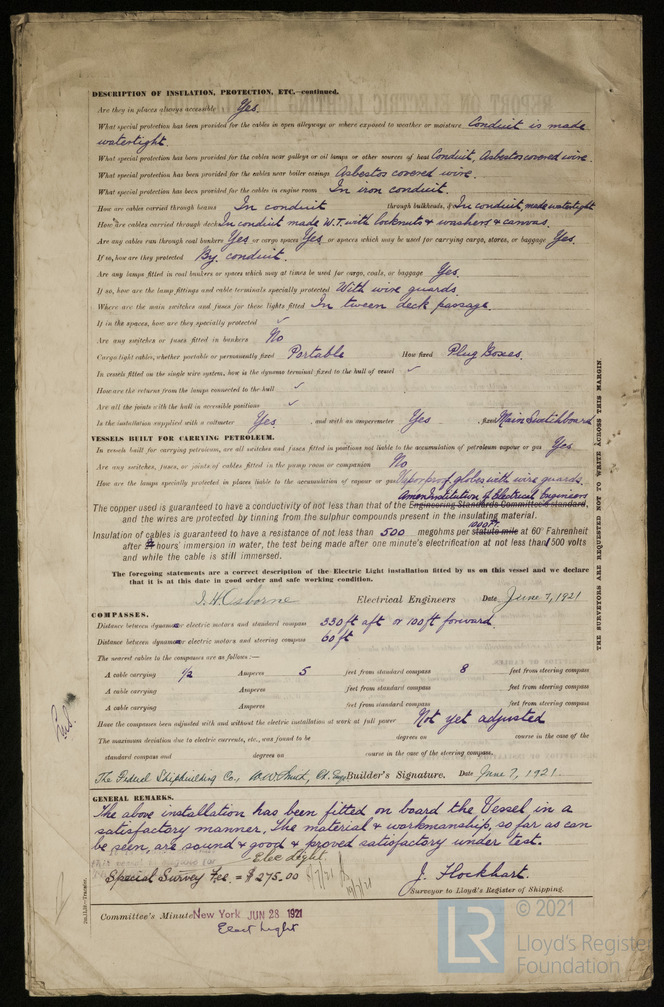 DESCRIPTION OF INSULATION, PROTECTION, ETC.—continued.
Are they in places always accessible Yes.
What special protection has been provided for the cables in open alleyways or where exposed to weather or moisture Conduit is made
watertight.
What special protection has been provided for the cables near galleys or oil lamps or other sources of heat Conduit, Asbestos covered wire.
What special protection has been provided for the cables near boiler casings Asbestos covered wire.
What special protection has been provided for the cables in engine room In iron conduit.
How are cables carried through beams In conduit through bulkheads, &c. In conduit, made watertight
How are cables carried through decks In conduit made W.T. with locknuts & washers & canvas.
Are any cables run through coal bunkers Yes or cargo spaces Yes or spaces which may be used for carrying cargo, stores, or baggage Yes.
If so, how are they protected By conduit.
Are any lamps fitted in coal bunkers or spaces which may at times be used for cargo, coals, or baggage Yes.
If so, how are the lamp fittings and cable terminals specially protected With wire guards
Where are the main switches and fuses for these lights fitted In tween deck passage.
If in the spaces, how are they specially protected ✓
Are any switches or fuses fitted in bunkers No
Cargo light cables, whether portable or permanently fixed Portable How fixed Plug Boxes.
In vessels fitted on the single wire system, how is the dynamo terminal fixed to the hull of vessel ✓
How are the returns from the lamps connected to the hull ✓
Are all the joints with the hull in accessible positions ✓
Is the installation supplied with a voltmeter Yes , and with an amperemeter Yes , fixed Main Switchboard
VESSELS BUILT FOR CARRYING PETROLEUM.
In vessels built for carrying petroleum, are all switches and fuses fitted in positions not liable to the accumulation of petroleum vapour or gas Yes
Are any switches, fuses, or joints of cables fitted in the pump room or companion No
How are the lamps specially protected in places liable to the accumulation of vapour or gas Vaporproof globes with wire guards.
Amer. Institution of Electrical Engineers
The copper used is guaranteed to have a conductivity of not less than that of the Engineering Standards Committee's standard,
and the wires are protected by tinning from the sulphur compounds present in the insulating material.
1000 ft.
Insulation of cables is guaranteed to have a resistance of not less than 500 megohms per statute mile at 60° Fahrenheit
after 24 hours' immersion in water, the test being made after one minute's electrification at not less than 1500 volts
and while the cable is still immersed.
The foregoing statements are a correct description of the Electric Light installation fitted by us on this vessel and we declare
that it is at this date in good order and safe working condition.
J. H. Osborne Electrical Engineers Date June 7, 1921
COMPASSES.
Distance between dynamo or electric motors and standard compass 330 ft aft or 100 ft forward.
Distance between dynamo or electric motors and steering compass 60 ft
The nearest cables to the compasses are as follows:—
A cable carrying 1/2 Amperes 5 feet from standard compass 8 feet from steering compass
A cable carrying Amperes feet from standard compass feet from steering compass
A cable carrying Amperes feet from standard compass feet from steering compass
Have the compasses been adjusted with and without the electric installation at work at full power Not yet adjusted
The maximum deviation due to electric currents, etc., was found to be degrees on course in the case of the
standard compass and degrees on course in the case of the steering compass.
The Federal Shipbuilding Co., Builder's Signature. Date June 7, 1921.
GENERAL REMARKS.
The above installation has been fitted on board the Vessel in a
satisfactory manner. The material & workmanship, so far as can
be seen, are sound & good & proved satisfactory under test.
Elec Light
Special Survey Fee = $275.00
J. Flockhart.
Surveyor to Lloyd's Register of Shipping.
Committee's Minute New York JUN 28 1921
Elect Light
THE SURVEYORS ARE REQUESTED NOT TO WRITE ACROSS THIS MARGIN.
LR © 2021
Lloyd's Register
Foundation